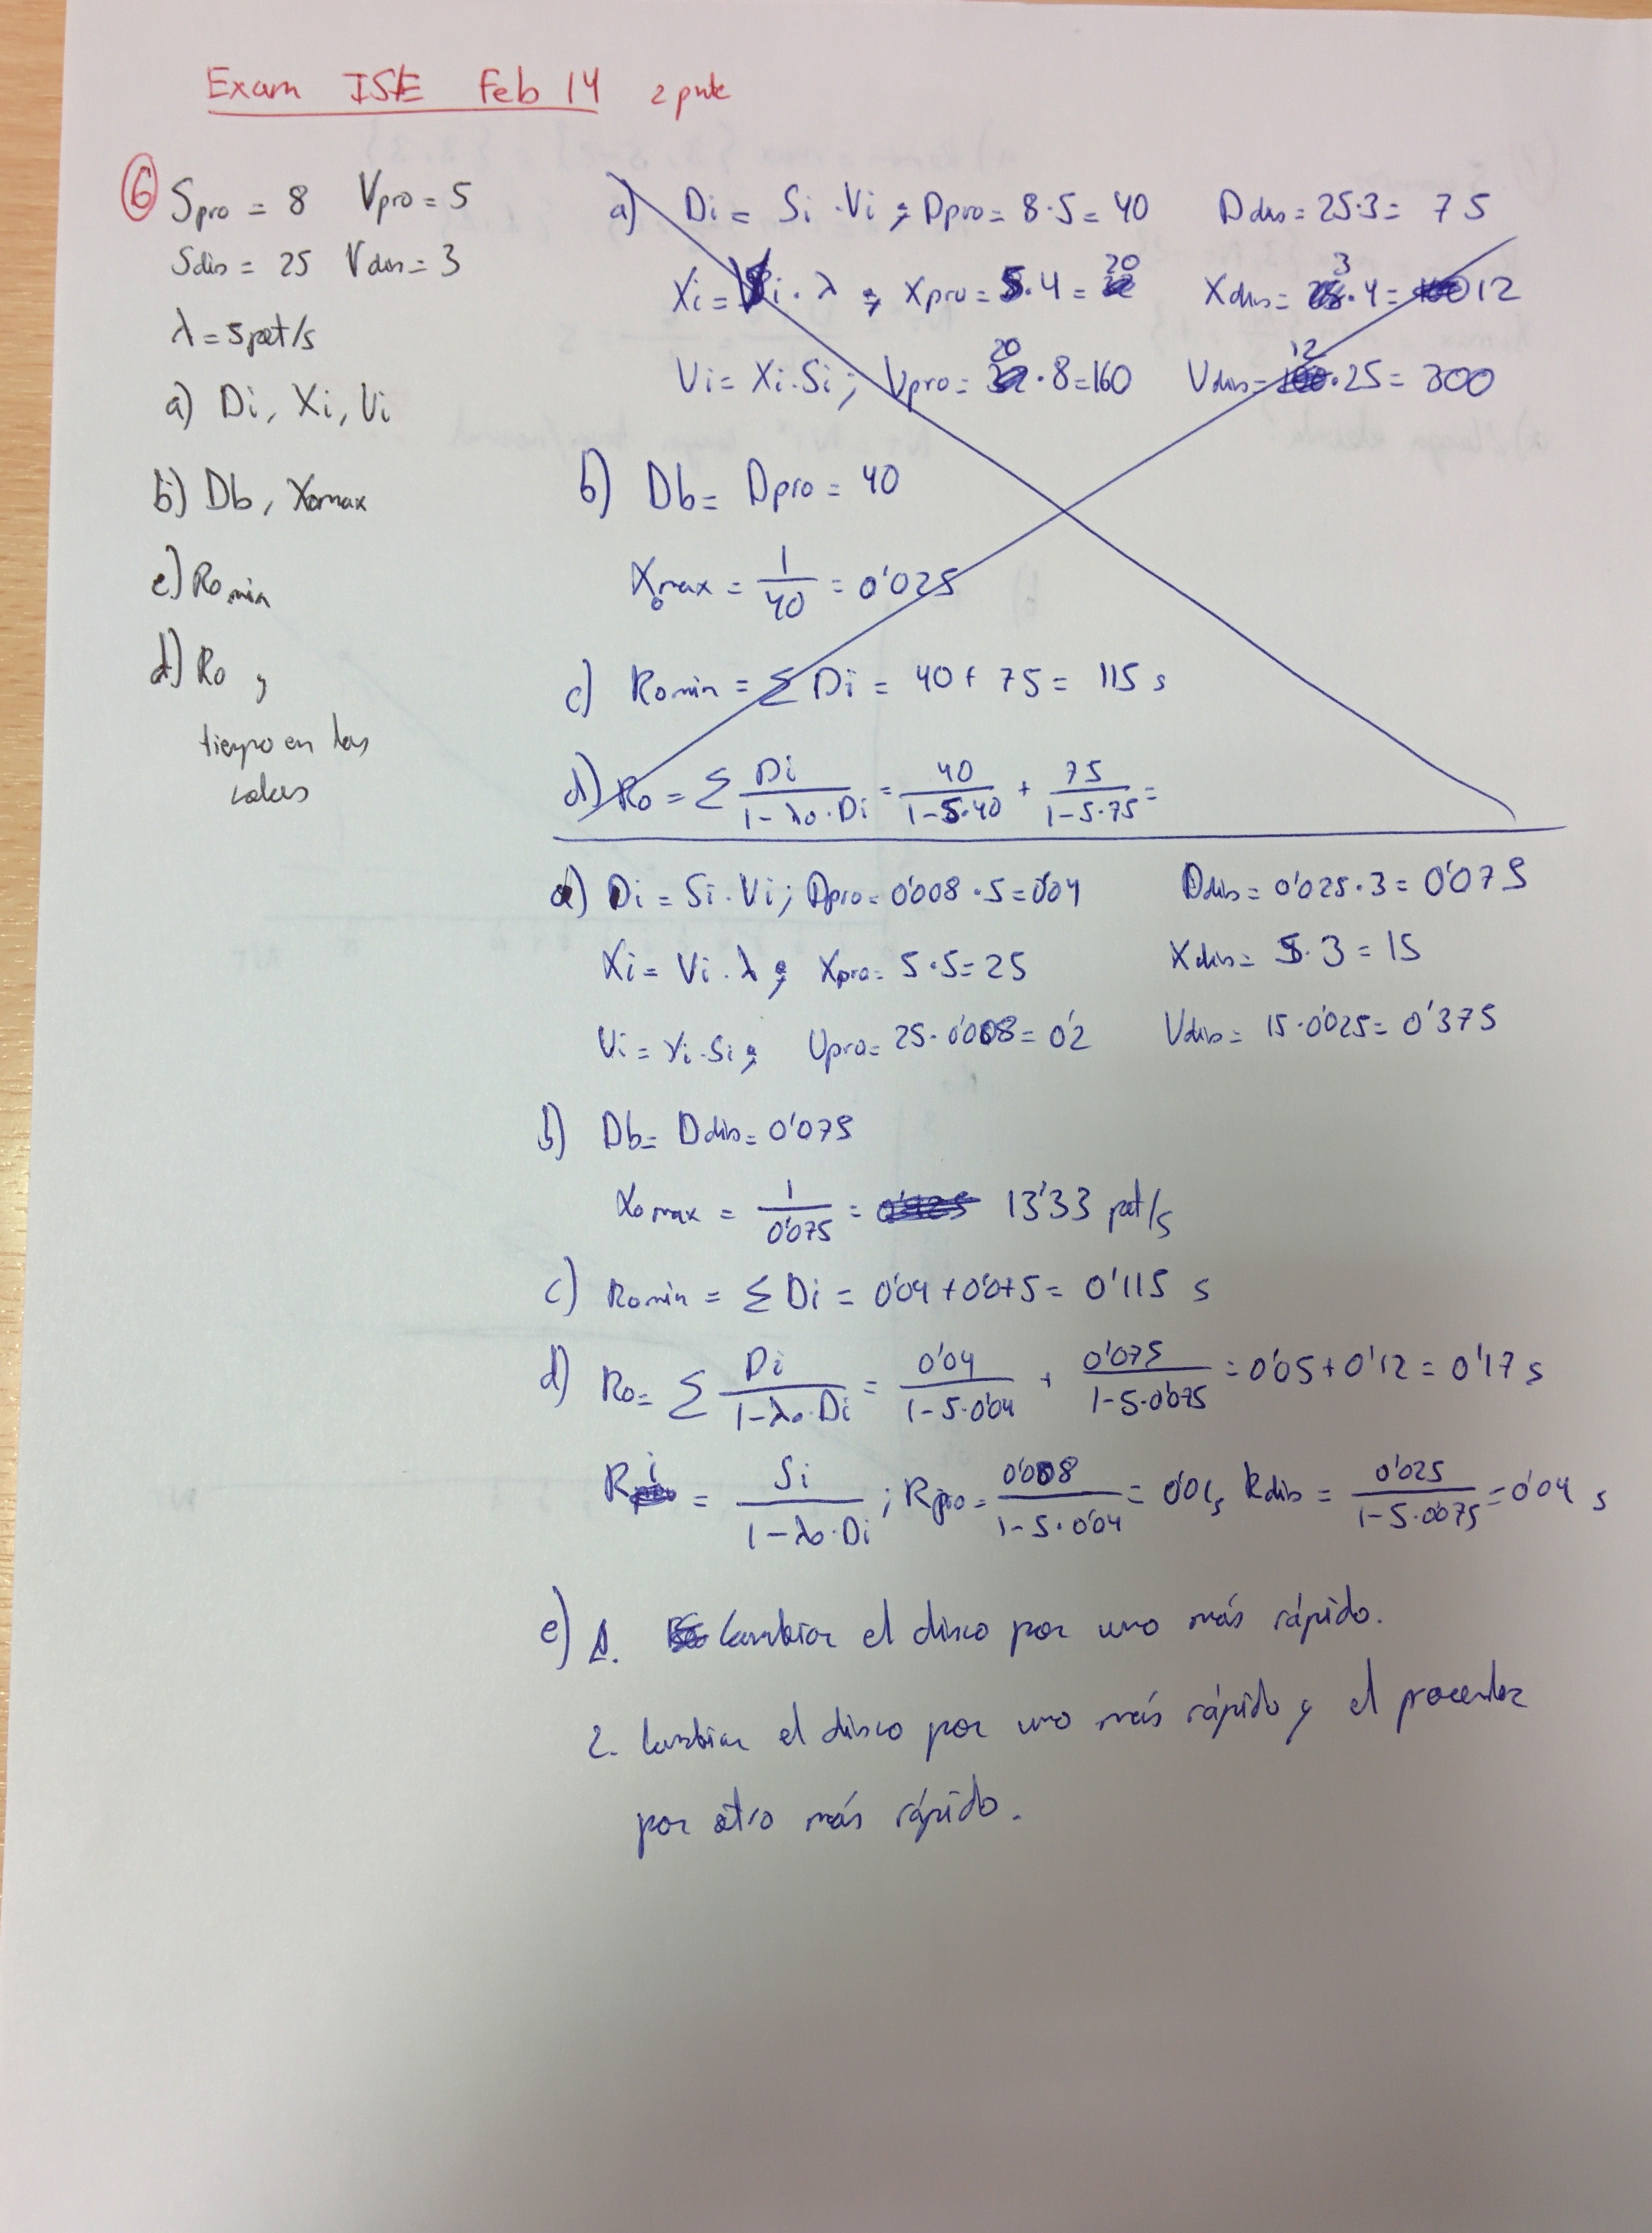 Exam ISE Feb 14 2 parte
6
Spro = 8 Vpro = 5
Sdis = 25 Vdis = 3
λ = 5 pet/s
a) Di, Xi, Ui
b) Db, Xomax
c) Romin
d) Ro y
tiempo en las
colas
a) Di = Si · Vi ; Dpro = 8·5 = 40 Ddis = 25·3 = 75
Xi = Vi · λ ; Xpro = 5·4 = 20 Xdis = 3·4 = 12
Ui = Xi · Si ; Upro = 20·8 = 160 Udis = 12·25 = 300
b) Db = Dpro = 40
Xomax = 1/40 = 0'025
c) Romin = Σ Di = 40 + 75 = 115 s
d) Ro = Σ Di/(1-λo·Di) = 40/(1-5·40) + 75/(1-5·75) =
a) Di = Si · Vi ; Dpro = 0'008 · 5 = 0'04 Ddis = 0'025·3 = 0'075
Xi = Vi · λ ; Xpro = 5·5 = 25 Xdis = 5·3 = 15
Ui = Xi · Si ; Upro = 25·0'008 = 0'2 Udis = 15·0'025 = 0'375
b) Db = Ddis = 0'075
Xomax = 1/0'075 = 13'33 pet/s
c) Romin = Σ Di = 0'04 + 0'075 = 0'115 s
d) Ro = Σ Di/(1-λo·Di) = 0'04/(1-5·0'04) + 0'075/(1-5·0'075) = 0'05 + 0'12 = 0'17 s
Ri = Si/(1-λo·Di) ; Rpro = 0'008/(1-5·0'04) = 0'01s Rdis = 0'025/(1-5·0'075) = 0'04 s
e) 1. Cambiar el disco por uno más rápido.
2. Cambiar el disco por uno más rápido y el procesador
por otro más rápido.